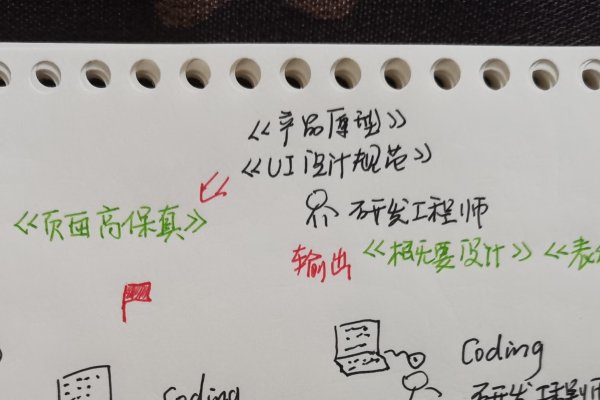 《产品原型》
《UI设计规范》
《页面高保真》
研发工程师
输出 《概要设计》《表
Coding
Coding
研发工程师